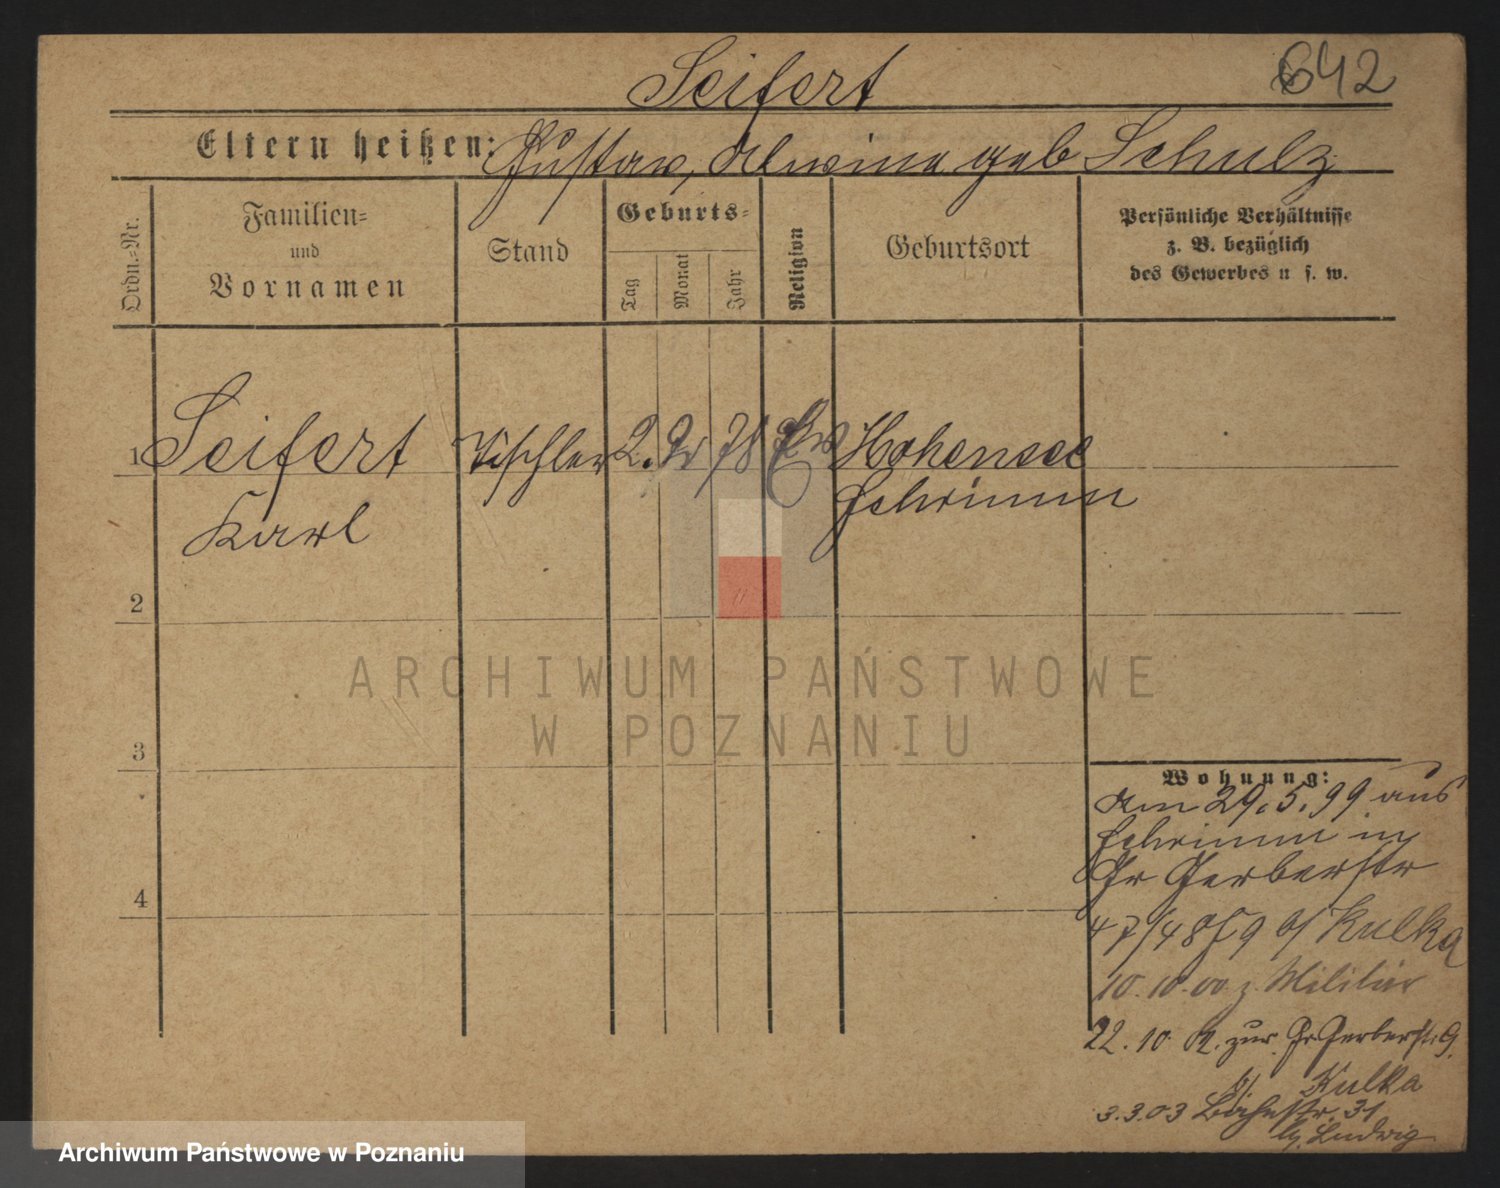 Seifert
642
Eltern heißen: Gustav, Alwine geb Schulz
Ordn.=Nr.
Familien=
und
Vornamen
Stand
Geburts=
Tag
Monat
Jahr
Religion
Geburtsort
Persönliche Verhältnisse
z. B. bezüglich
des Gewerbes u s. w.
1 Seifert Tischler 2. 78 Ev Hohensee
Karl Schrimm
2
3
4
Wohnung:
Am 29.5.99 aus
Schrimm in
Gr Gerberstr
47/48 9 b/ Kulka
10.10.00 z. Militär
22.10. 02. zur. Gr Gerberstr. 9.
b/ Kulka
3.3.03 31
b/. Ludwig
ARCHIWUM PAŃSTWOWE
W POZNANIU
Archiwum Państwowe w Poznaniu